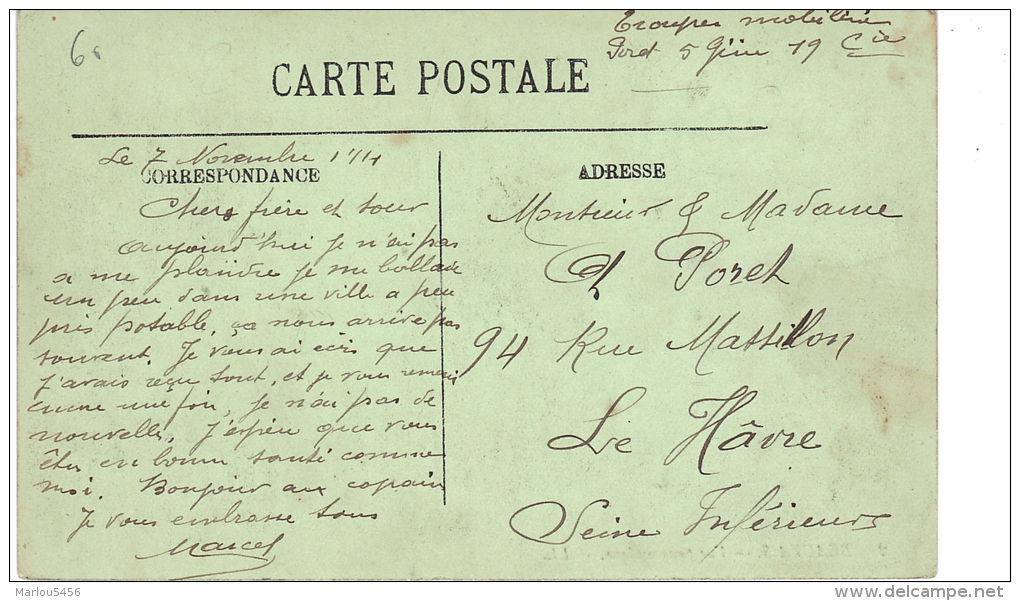 6
Troupes mobilisées
Poret 5 Génie 19 Cie
CARTE POSTALE
Le 7 Novembre 1914
CORRESPONDANCE
ADRESSE
Chers frère et sœur
aujourd'hui je n'ai pas
a me plaindre je me ballade
un peu dans une ville a peu
près potable, ça nous arrive pas
souvent. Je vous ai écris que
j'avais reçu tout, et je vous remerci
encore une fois, je n'ai pas de
nouvelles, j'espère que vous
êtes en bonne santé comme
moi. Bonjour aux copain
Je vous embrasse tous
Marcel
Monsieur & Madame
Poret
94 Rue Massillon
Le Hâvre
Seine Inférieure
Marlou5456
www.delcampe.net